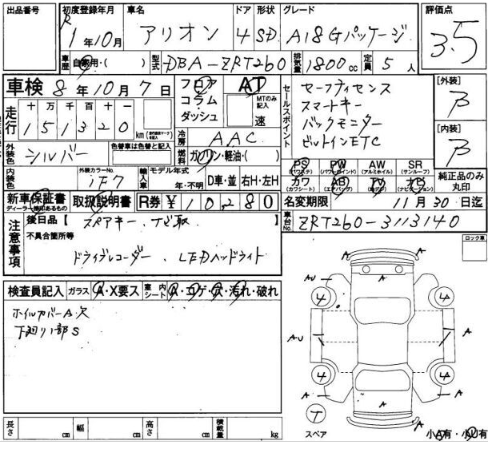 出品番号
初度登録年月 R 1年10月
車名 アリオン
ドア 4 形状 SD
グレード A18 Gパッケージ
評価点 3.5
車歴 自家用・( )
型式 DBA-ZRT260
排気量 1800cc
定員 5人
車検 8年10月7日
フロア コラム ダッシュ
AT MTのみ記入 速
セールスポイント
セーフティセンス
スマートキー
バックモニター
ビルトインETC
[外装] B
[内装] B
走行 十万千百十一
151320 km
冷房 AAC
外装色 シルバー
色替車は色替と記入
燃料 ガソリン・軽油( )
内装色 カラーNo. 1F7
輸入車 モデル年式 年・不明 D車・並 右H・左H
PS (パワステ) PW (パワーウインド) AW (アルミホイル) SR (サンルーフ)
純正品のみ丸印
新車保証書 取扱説明書 R券 ¥10280
名変期限 11月30日迄
車台No. ZRT260-3113140
注意事項
後日品【スペアキー、ナビ取 】
不具合箇所等
ドライブレコーダー、LEDヘッドライト
検査員記入 ガラス A・X要ス 室内シート ・汚れ・破れ
ホイルカバーA、欠
下廻り1部S
長さ cm 幅 cm 高さ cm 積載量 kg
ロック車
AU A A AU
4 4
A A
4 4
A A
T スペア
小A有・小U有